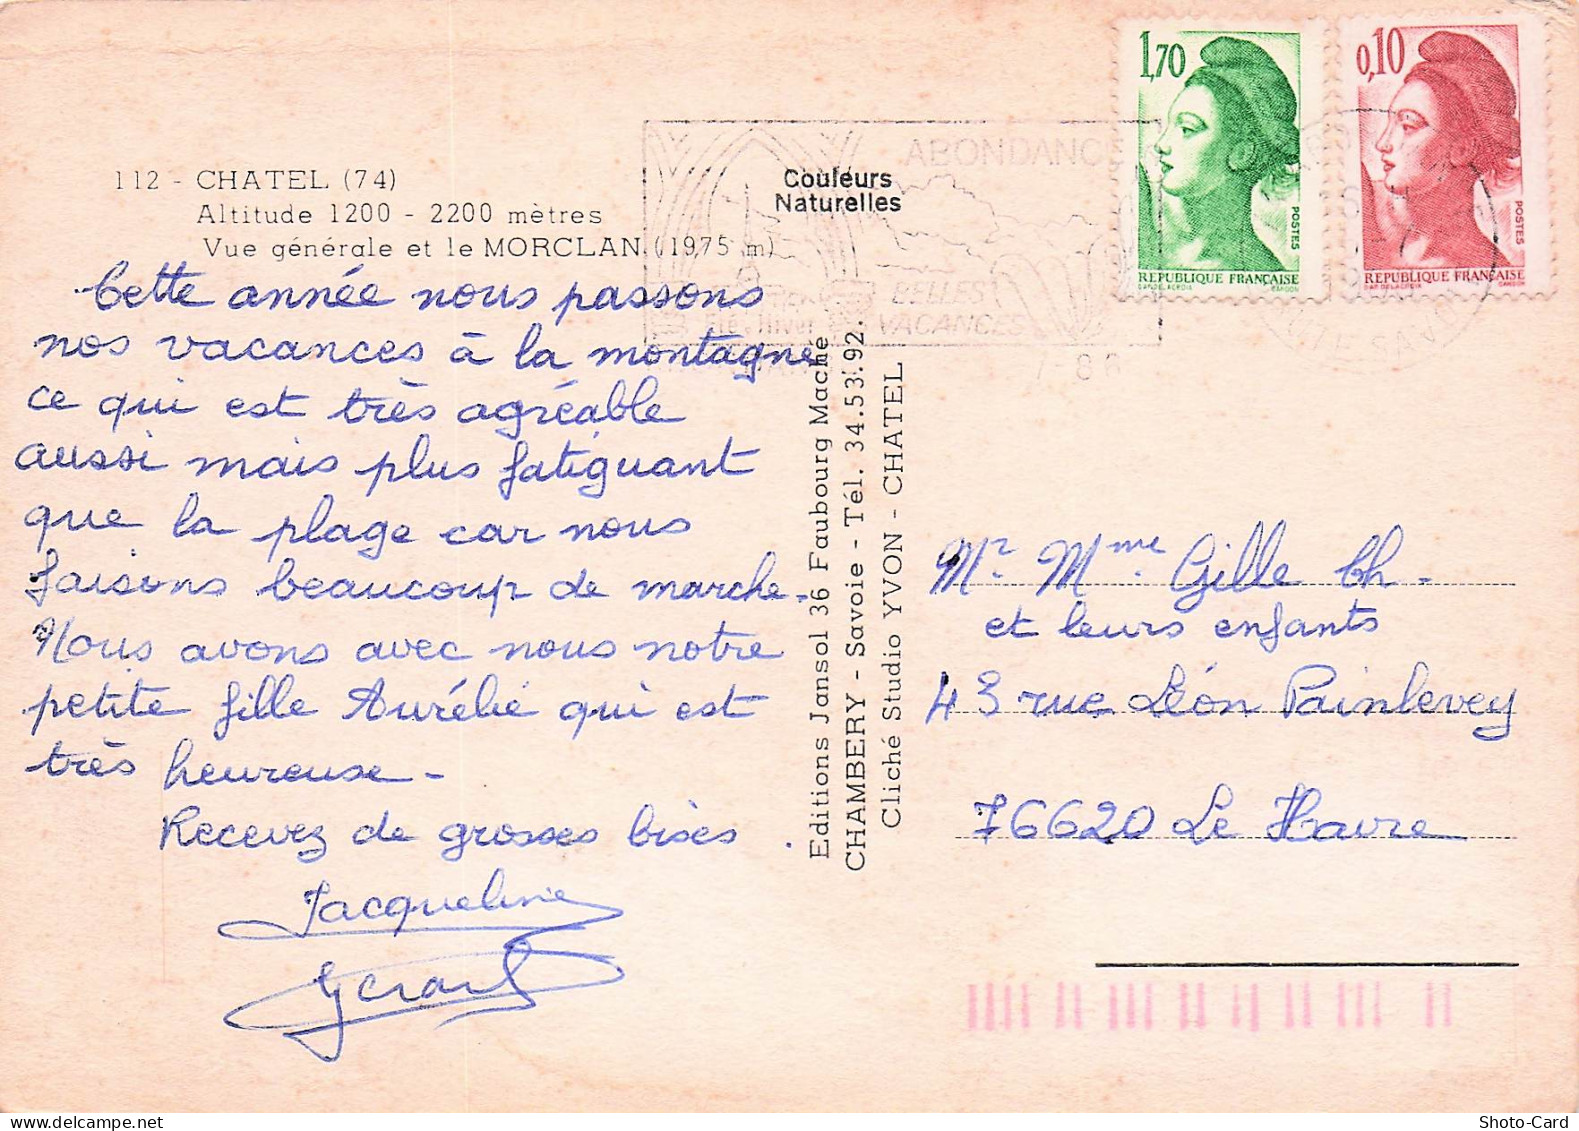 112 - CHATEL (74)
Altitude 1200 - 2200 mètres
Vue générale et le MORCLAN (1975 m)
Couleurs
Naturelles
Cette année nous passons
nos vacances à la montagne
ce qui est très agréable
aussi mais plus fatiguant
que la plage car nous
faisons beaucoup de marche.
Nous avons avec nous notre
petite fille Aurélie qui est
très heureuse -
Recevez de grosses bises
Jacqueline
Gérard
Editions Jansol 36 Faubourg Maché
CHAMBERY - Savoie - Tél. 34.53.92.
Cliché Studio YVON - CHATEL
ABONDANCE
BELLES
VACANCES
1,70
POSTES
REPUBLIQUE FRANÇAISE
0,10
POSTES
REPUBLIQUE FRANÇAISE
Mr. Mme. Gille Ch.
et leurs enfants
43 rue Léon Painlevey
76620 Le Havre
www.delcampe.net
Shoto-Card